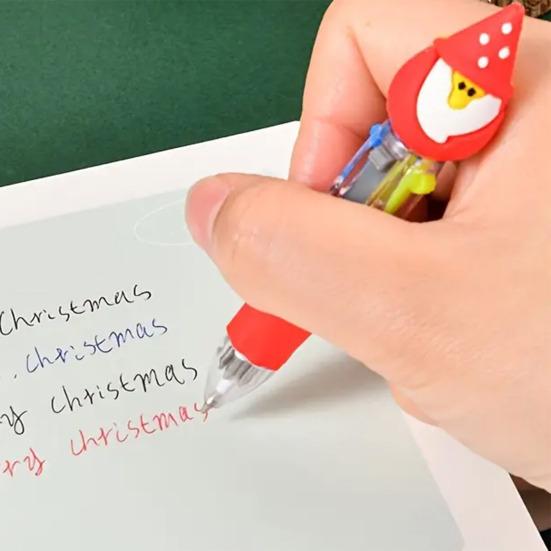 Christmas
. Christmas
y Christmas
rry christmas